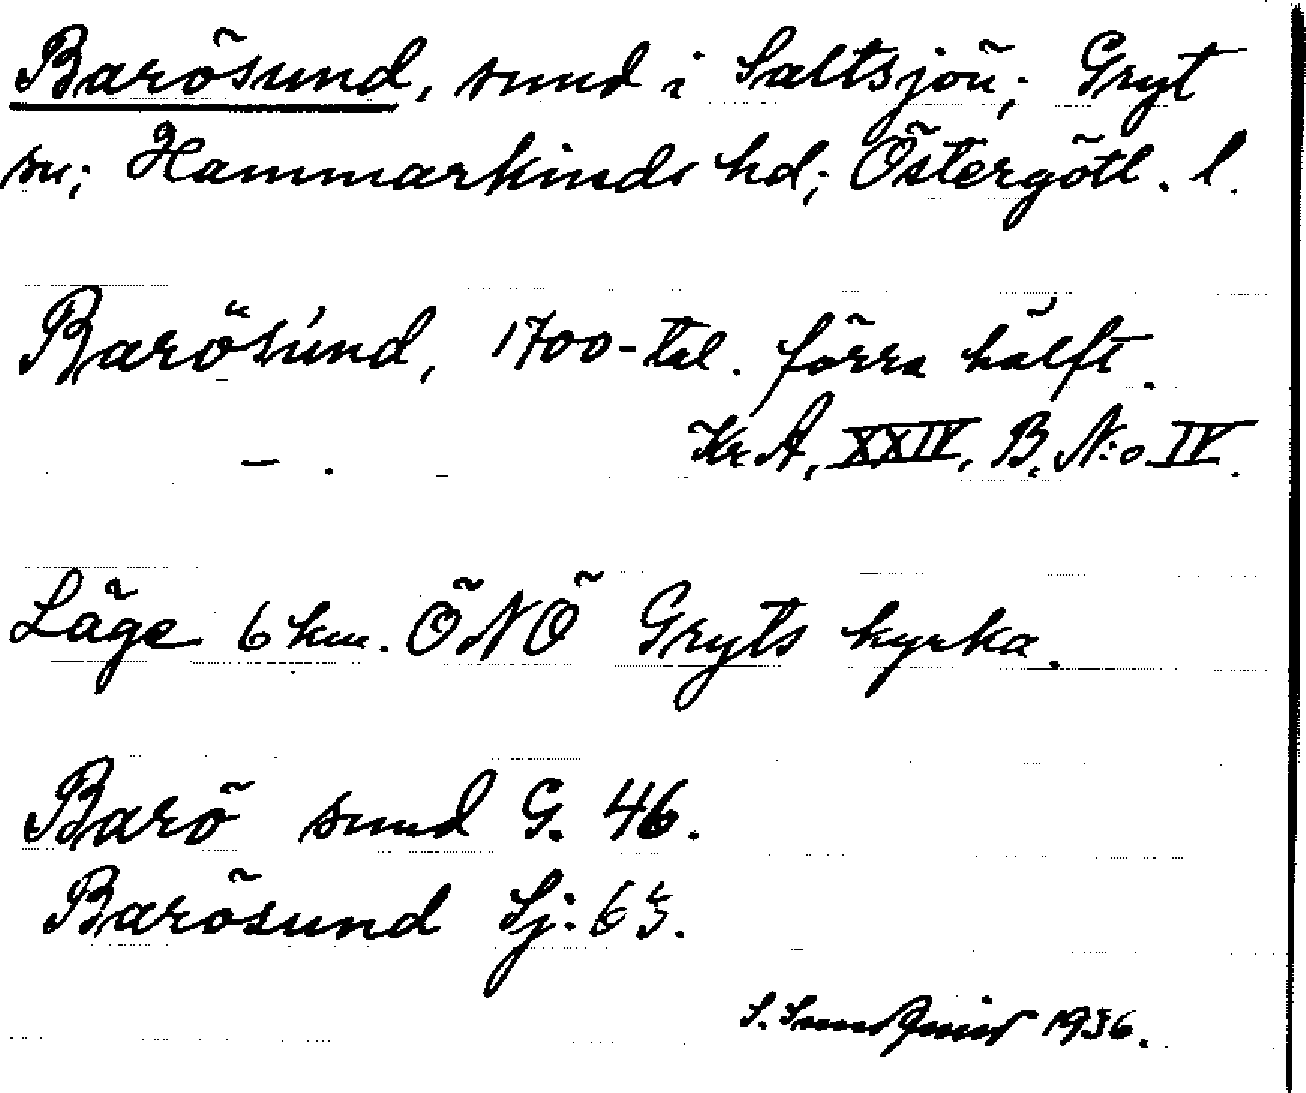 Barösund, sund i Saltsjön; Gryt
sn; Hammarkinds hd; Östergötl. l.
Barösund, 1700-tal. förra hälft.
Kr. A, XXIV, B. N:o IV.
Läge 6 km. ÖNÖ Gryts kyrka.
Barö sund G. 46.
Barösund Sj. 63.
S. 1936.